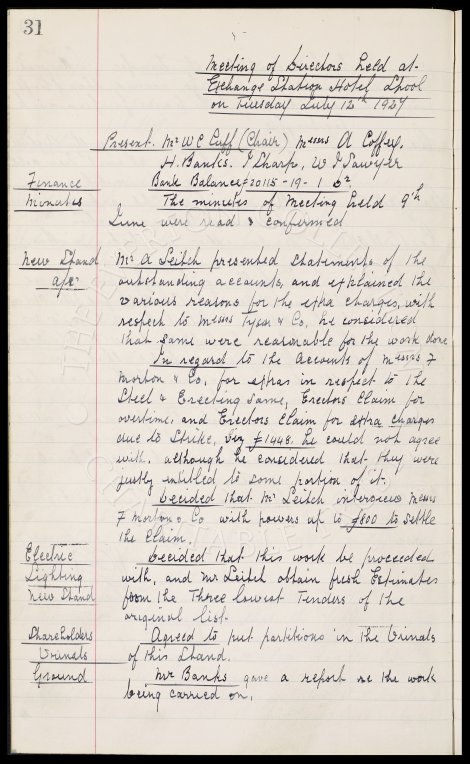 31
Meeting of Directors held at
Exchange Station Hotel Lpool
on Tuesday July 12th 1927
Present. Mr W C Cuff (Chair) Messrs A Coffey,
H. Banks. J Sharp, W J Sawyer
Finance Bank Balance £20115-19-1
Minutes The minutes of Meeting held 9th
June were read & confirmed
New Stand Mr A Leitch presented Statements of the
a/cs outstanding accounts, and explained the
various reasons for the extra charges, with
respect to Messrs Tyson & Co, he considered
that same were reasonable for the work done
In regard to the Accounts of Messrs F
Morton & Co, for extras in respect to the
Steel & Erecting same, Erectors Claim for
overtime, and Erectors Claim for extra charges
due to Strike, viz £1448. he could not agree
with. although he considered that they were
justly entitled to some portion of it.
Decided that Mr Leitch interview Messrs
F Morton & Co with powers up to £800 to settle
the Claim.
Electric Decided that this work be proceeded
Lighting with, and Mr Leitch obtain fresh Estimates
New Stand from the Three lowest Tenders of the
original list.
Shareholders Agreed to put partitions in the Urinals
Urinals of this Stand.
Ground Mr Banks gave a report re the work
being carried on.